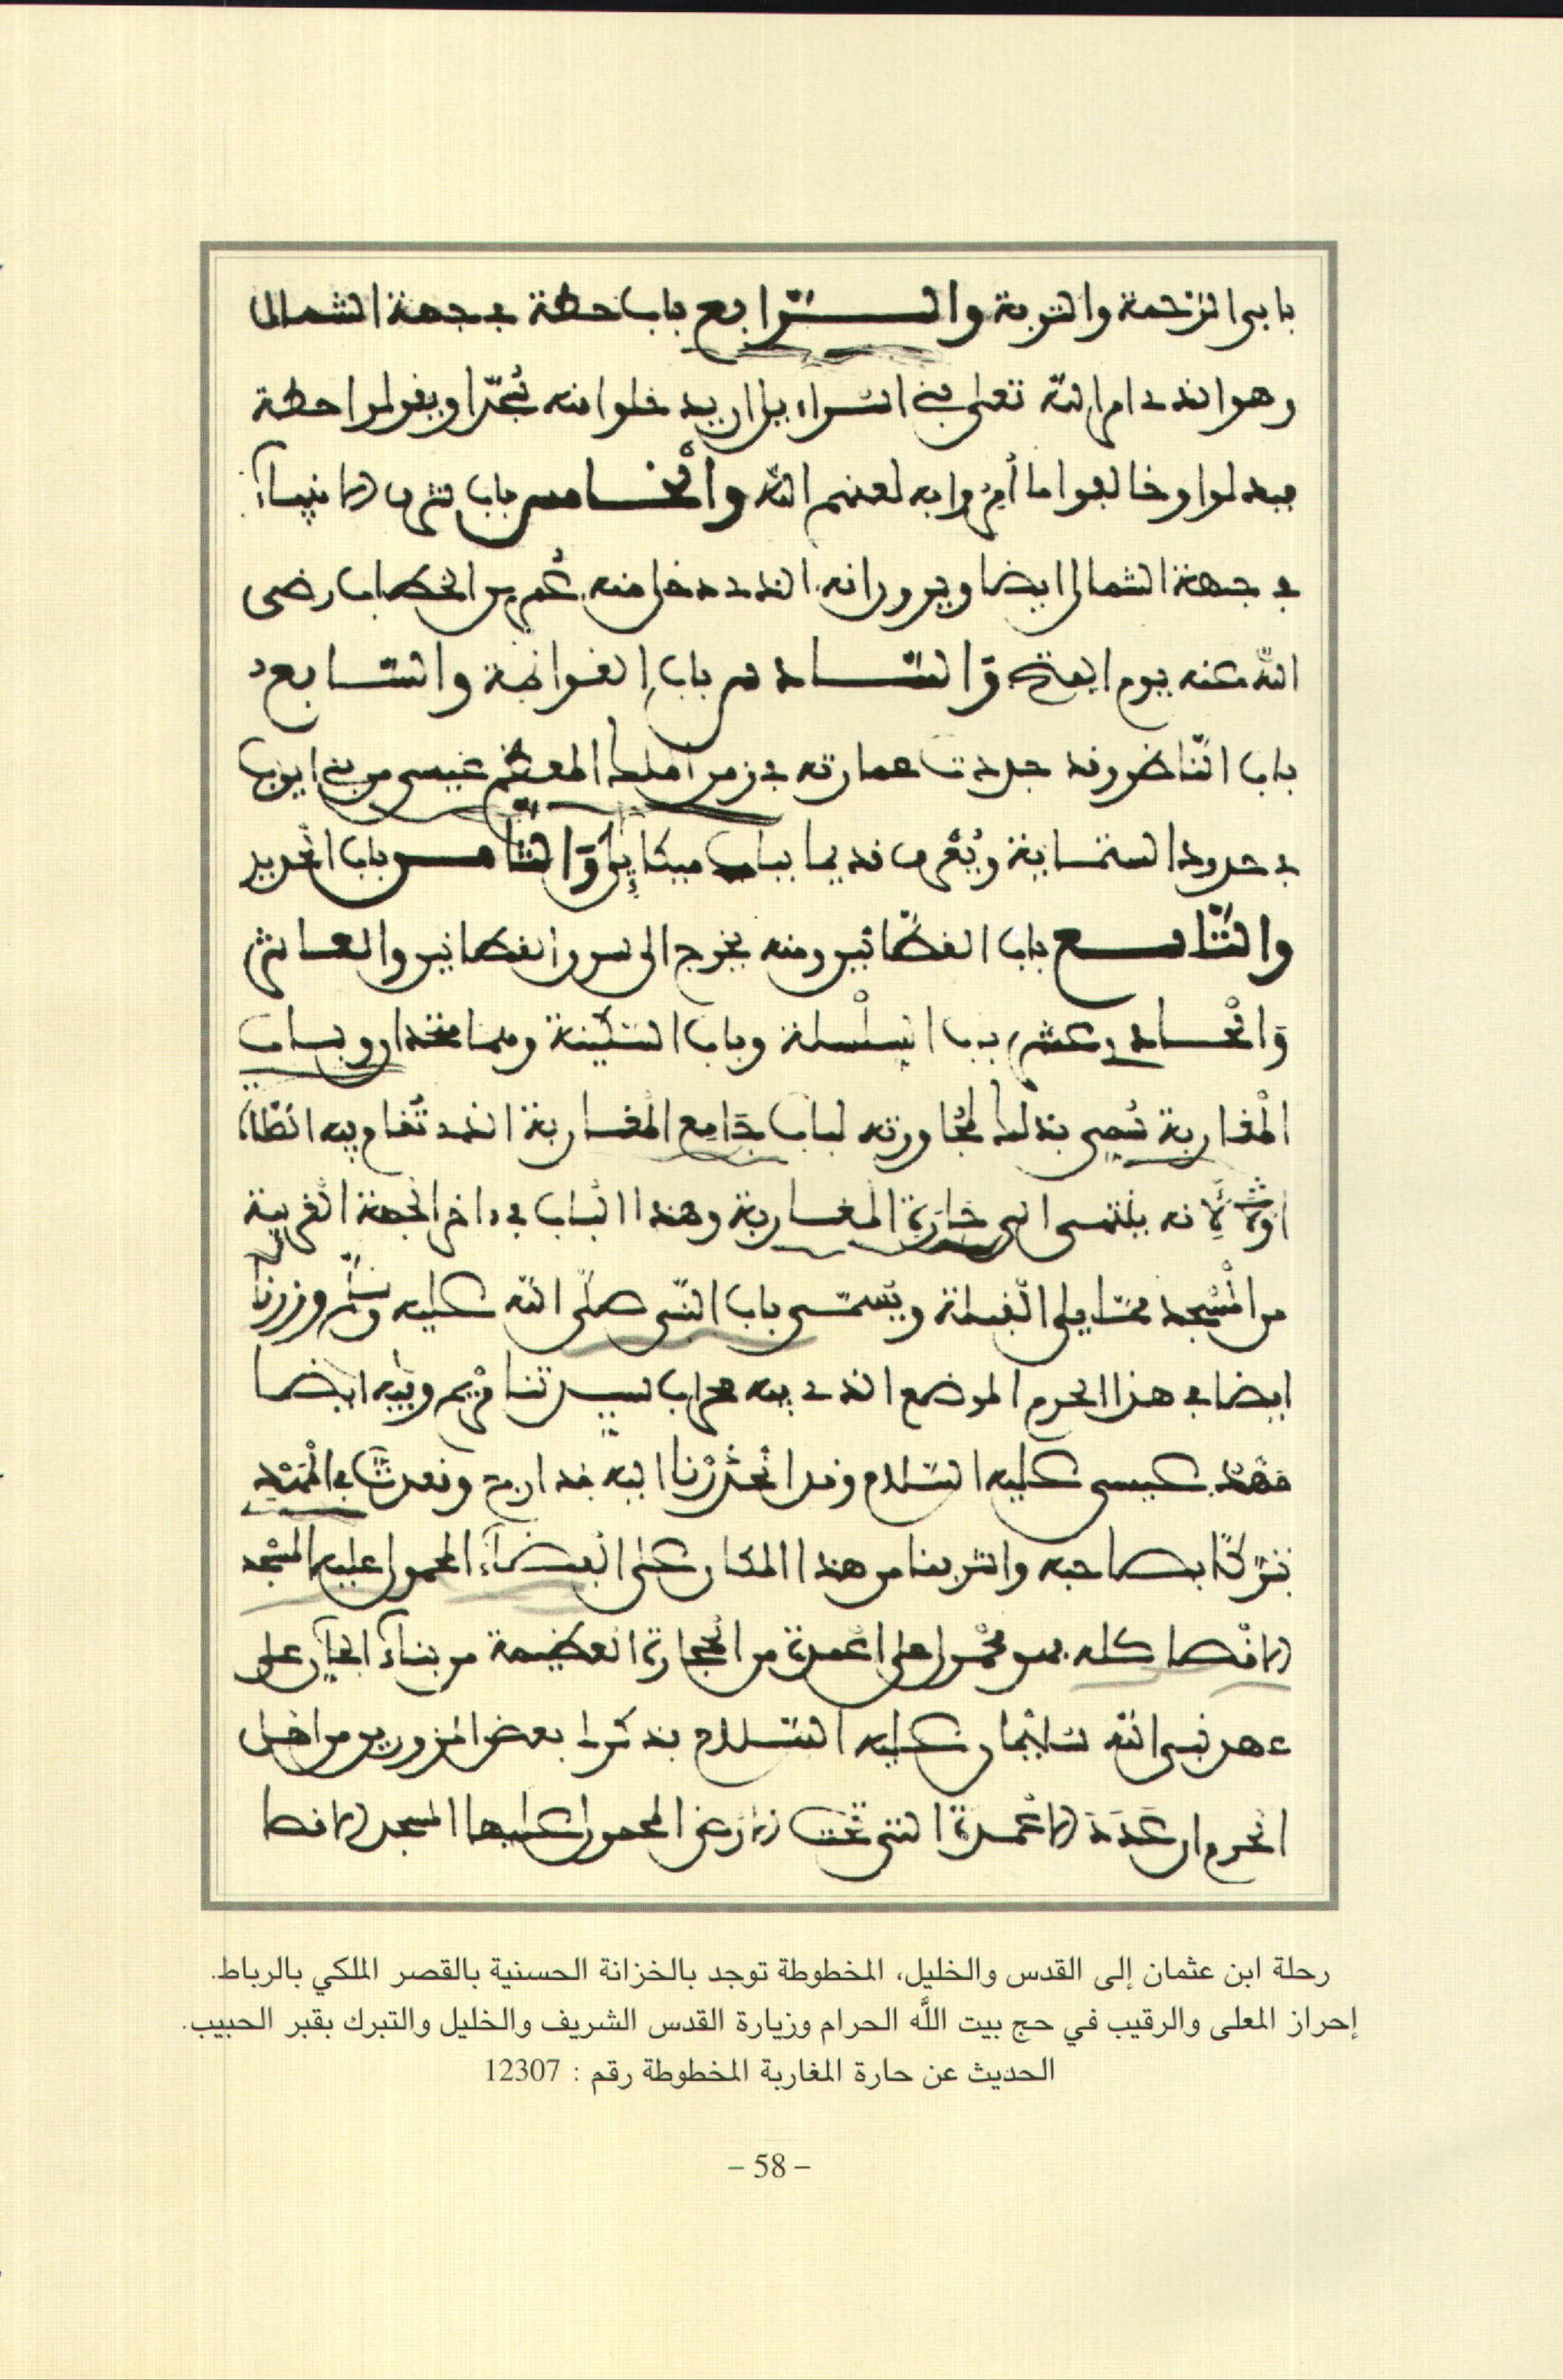 بابي الرحمة والتوبة والرابع باب حطة في جهة الشمال
وهو الذي امر الله تعلى بني اسراءيل ان يدخلوا منه سجدا ويقولوا حطة
فبدلوا وخالفوا ما أمروا به لعنهم الله والخامس باب شرف الانبياء
في جهة الشمال ايضا ويرون انه الذي دخل منه عمر بن الخطاب رضي
الله عنه يوم الفتح والسادس باب الغوانمة والسابع
باب الناظر وقد جددت عمارته في زمن الملك المعظم عيسى من بني ايوب
في حدود الستماية ويعرف قديما بباب ميكائيل والثامن باب الحديد
والتاسع باب القطانين ومنه يخرج الى سوق القطانين والعاشر
والحادي عشر باب السلسلة وباب السكينة وهما متحدان وباب
المغاربة سمي بذلك لمجاورته لباب جامع المغاربة الذي تقام فيه الصلاة
اولا لأنه ينتهي الى حارة المغاربة وهذا الباب في داخر الجهة الغربية
من المسجد مما يلي القبلة ويسمى باب النبي صلى الله عليه وسلم وزرنا
ايضا في هذا الحرم الموضع الذي فيه محراب سيدتنا مريم وفيه ايضا
مهد عيسى عليه السلام وقد انحدرنا اليه بعد ادراج وقعدنا في المهد
تبركا بصاحبه واشرفنا من هذا المكان على الفضاء المحمول عليه المسجد
الاقصا كله فهو محمول على اعمدة من الحجارة العظيمة من بناء الجان على
عهد نبي الله سليمان عليه السلام فذكر لنا بعض المزورين من اهل
الحرم ان عدد الاعمدة التي تحت الارض المحمول عليها المسجد الاقصا
رحلة ابن عثمان إلى القدس والخليل، المخطوطة توجد بالخزانة الحسنية بالقصر الملكي بالرباط.
إحراز المعلى والرقيب في حج بيت اللَّه الحرام وزيارة القدس الشريف والخليل والتبرك بقبر الحبيب.
الحديث عن حارة المغاربة المخطوطة رقم : 12307
– 58 –